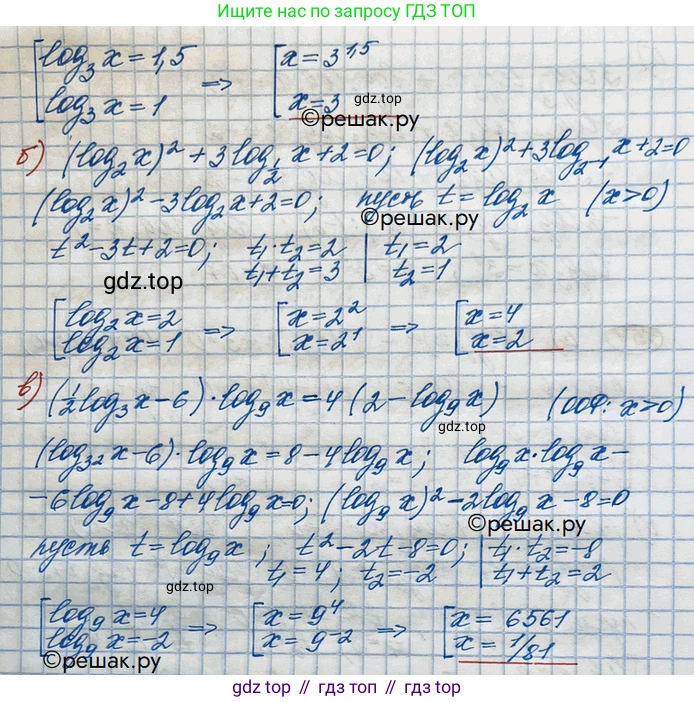 Ищите нас по запросу ГДЗ ТОП
[log₃ x = 1,5 ⇒ [x = 3^1,5
[log₃ x = 1 [x = 3
gdz.top
©решак.ру
б) (log₂ x)² + 3 log_½ x + 2 = 0; (log₂ x)² + 3 log_2⁻¹ x + 2 = 0
(log₂ x)² - 3 log₂ x + 2 = 0; пусть t = log₂ x (x > 0)
©решак.ру
t² - 3t + 2 = 0; t₁ · t₂ = 2 | t₁ = 2
t₁ + t₂ = 3 | t₂ = 1
gdz.top
[log₂ x = 2 ⇒ [x = 2² ⇒ [x = 4
[log₂ x = 1 [x = 2¹ [x = 2
в) (½ log₃ x - 6) · log₉ x = 4 (2 - log₉ x) (ООФ: x > 0)
gdz.top
(log_3² x - 6) · log₉ x = 8 - 4 log₉ x; log₉ x · log₉ x -
- 6 log₉ x - 8 + 4 log₉ x = 0; (log₉ x)² - 2 log₉ x - 8 = 0
©решак.ру
пусть t = log₉ x; t² - 2t - 8 = 0; | t₁ · t₂ = -8
t₁ = 4; t₂ = -2 | t₁ + t₂ = 2
gdz.top
[log₉ x = 4 ⇒ [x = 9⁴ ⇒ [x = 6561
[log₉ x = -2 [x = 9⁻² [x = 1/81
©решак.ру
©решак.ру
gdz top // гдз топ // gdz.top